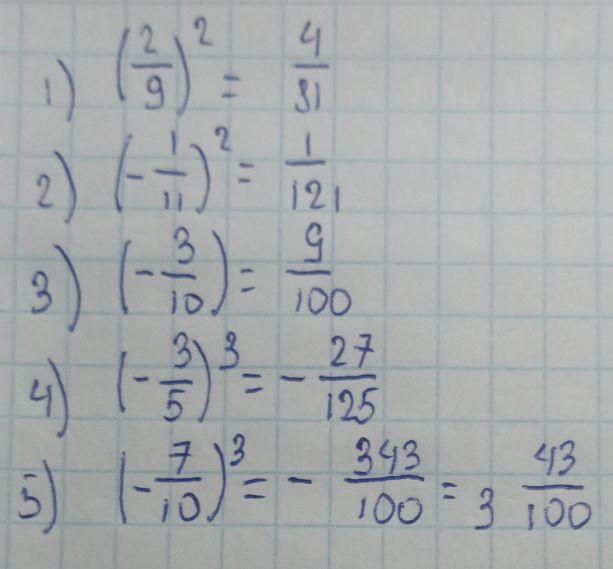 1) (2/9)^2 = 4/81
2) (-1/11)^2 = 1/121
3) (-3/10) = 9/100
4) (-3/5)^3 = -27/125
5) (-7/10)^3 = -343/100 = 3 43/100